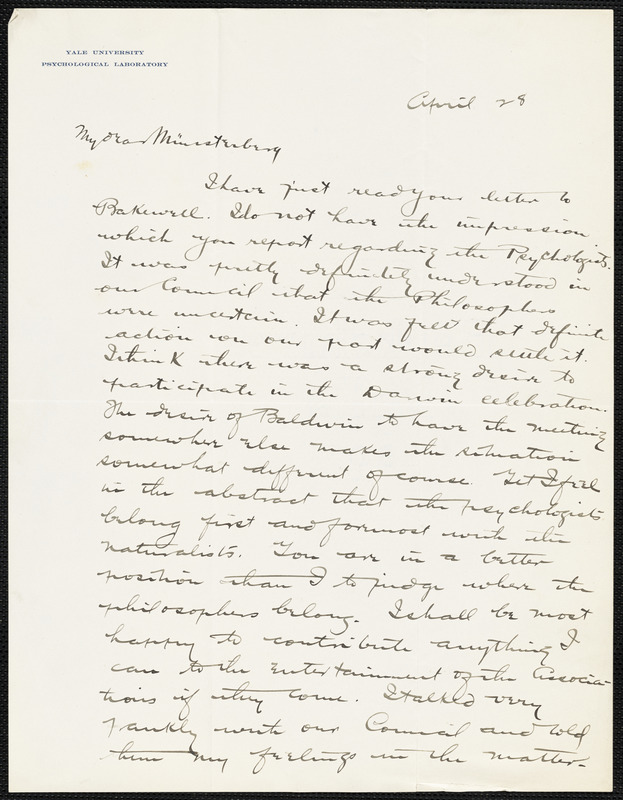 YALE UNIVERSITY
PSYCHOLOGICAL LABORATORY
April 28
My dear Münsterberg
I have just read your letter to
Bakewell. I do not have the impression
which you report regarding the Psychologists.
It was pretty definitely understood in
our Council that the Philosophers
were uncertain. It was felt that definite
action on our part would settle it.
I think there was a strong desire to
participate in the Darwin celebration.
The desire of Baldwin to have the meeting
somewhere else makes the situation
somewhat different of course. Yet I feel
in the abstract that the psychologists
belong first and foremost with the
naturalists. You are in a better
position than I to judge where the
philosophers belong. I shall be most
happy to contribute anything I
can to the entertainment of the Associa-
tions if they come. I talked very
frankly with our Council and told
them my feelings in the matter.